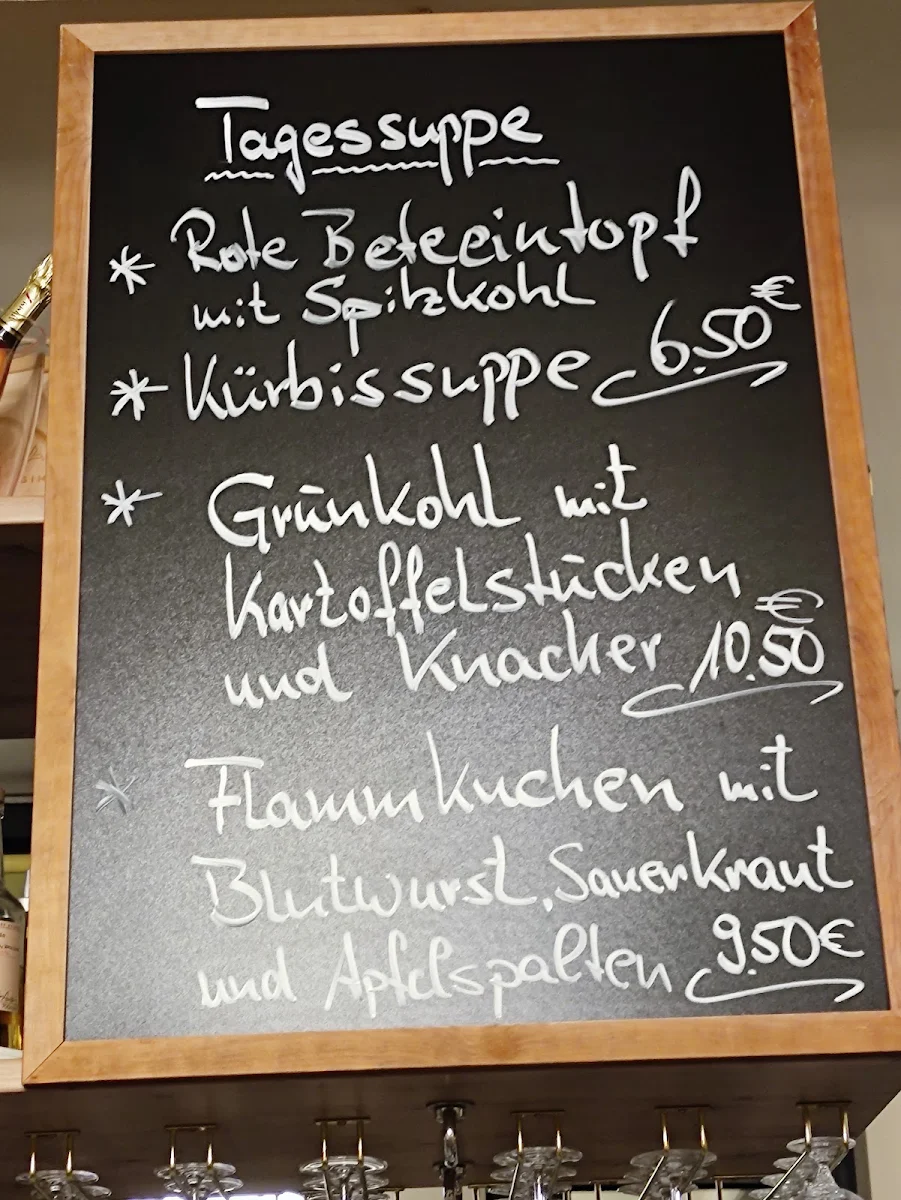 Tagessuppe
* Rote Beteeintopf
mit Spitzkohl
* Kürbissuppe 6.50€
* Grünkohl mit
Kartoffelstücken
und Knacker 10.50€
* Flammkuchen mit
Blutwurst, Sauerkraut
und Apfelspalten 9.50€